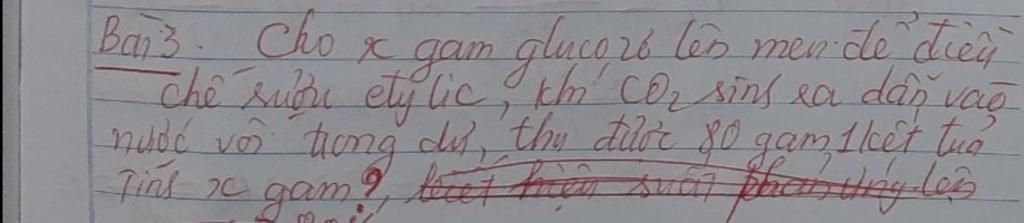 Bài 3. Cho x gam glucozơ lên men để điều
chế rượu etylic, khí CO2 sinh ra dẫn vào
nước vôi trong dư, thu được 80 gam kết tủa
Tính x gam?, biết hiệu suất phản ứng lên